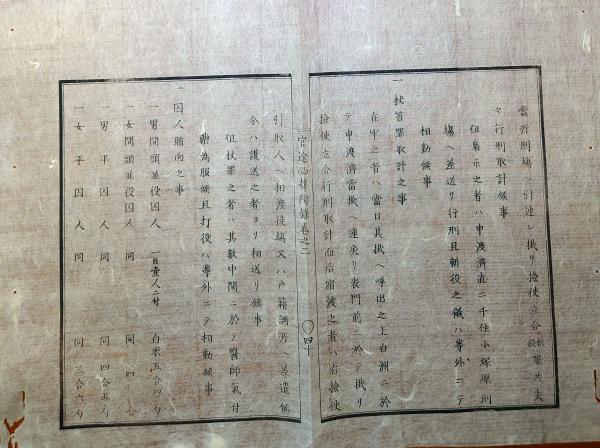 當所刑場ヘ引連レ掛リ撿使立合斬絞罪共夫
々行刑取計候事
但梟示之者ハ申渡濟直ニ千住小塚原刑
場ヘ差送リ行刑且斬役之儀ハ等外ニテ
相勤候事
一杖笞罪取計之事
在牢之者ハ當日其掀ヘ呼出之上白洲ニ於
テ申渡濟當掀ヘ連戾リ表門前ニ於テ掀リ
撿使立合行刑取計而后宿渡之者ハ右撿使
官途必携附錄卷之二
〇四十
引取人ヘ相渡徒塲又ハ戶籍調方ヘ差遣候
分ハ護送之者ヨリ相送リ候事
但杖罪之者ハ其數中間ニ於テ醫師氣付
藥為服候且打役ハ等外ニテ相勤候事
一囚人賄向之事
一男間頭並役囚人 一日壹人ニ付 白米五合四勺
一女間頭並役囚人 同 同四合
一男平囚人 同 同四合五勺
一女平囚人 同 同三合六勺